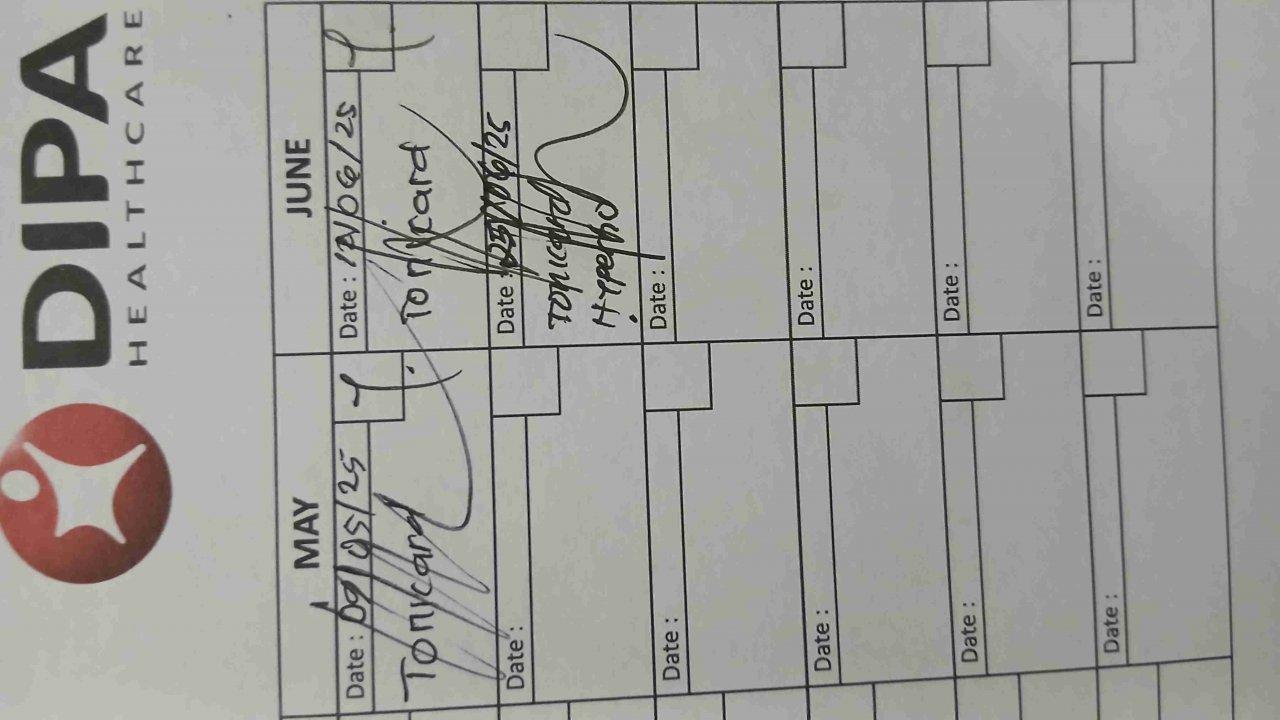 DIPA
HEALTHCARE
MAY
JUNE
Date : 09/05/25
Tonicard
Date : 12/06/25
Tonicard
Date :
Date : 25/06/25
Tonicard
Date :
Date :
Date :
Date :
Date :
Date :
Date :
Date :